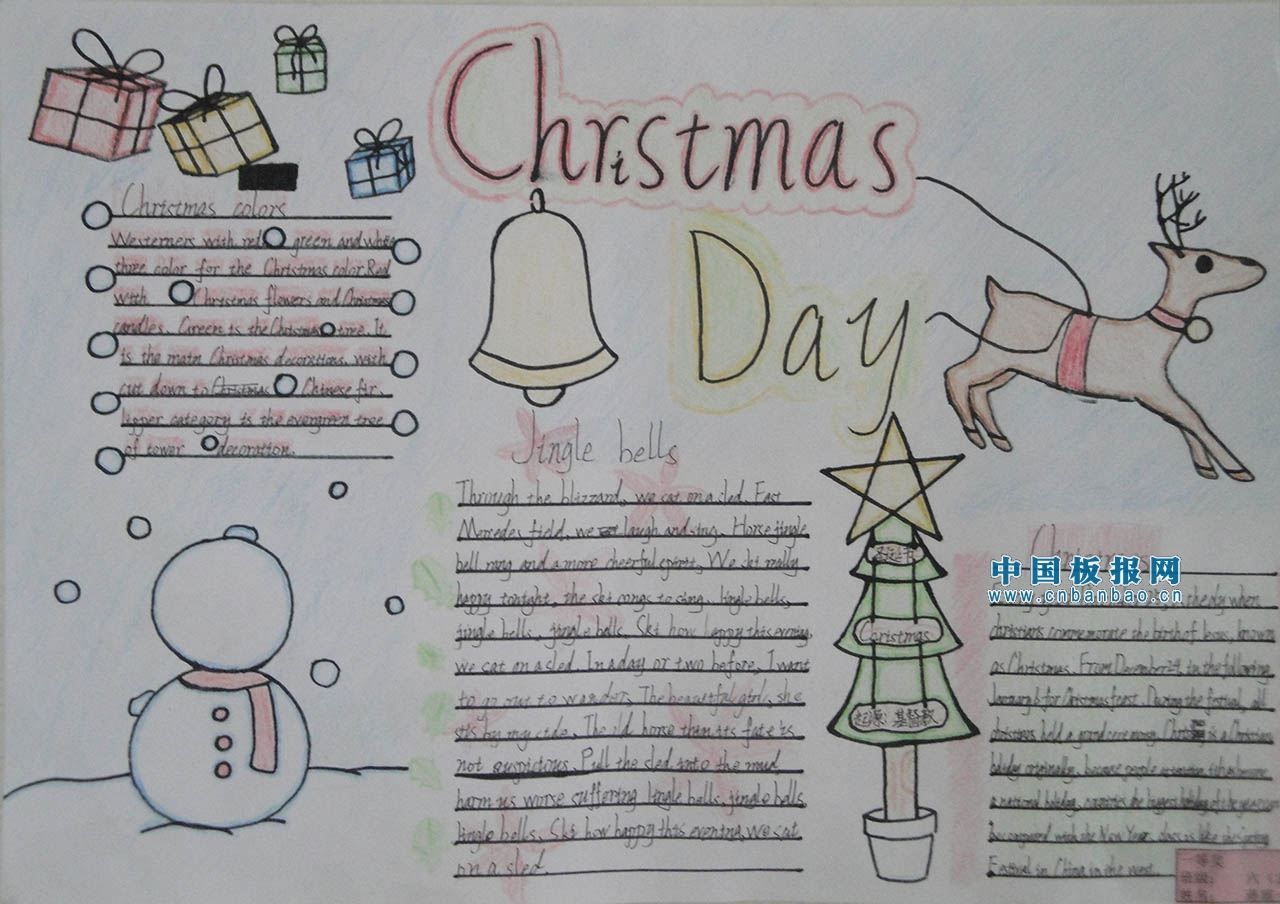 Christmas
Day
Christmas colors
Westerners with red green and white
three color for the Christmas color Red
with Christmas flowers and Christmas
candles. Green is the Christmas tree. It
is the main Christmas decorations. with
cut down to Christmas Chinese fir.
Upper category is the evergreen tree
of tower decoration.
Jingle bells
Through the blizzard, we sat on a sled. Fast
Mercedes field, we laugh and sing. Horse jingle
bell rang and a more cheerful spirit, We ski really
happy tonight, the ski songs to sing. Jingle bells,
jingle bells, jingle bells. Ski how happy this evening,
we sat on a sled. In a day or two before, I want
to go out to wander, The beautiful girl, she
sits by my side. The old horse thin its fate is
not auspicious. Pull the sled into the mud,
harm us worse suffering Jingle bells, jingle bells
Jingle bells. Ski how happy this evening, we sat
on a sled.
圣诞节
Christmas
起源:基督教
Christmas
中国板报网
www.cnbanbao.cn
the day when
christians commemorate the birth of Jesus, known
as Christmas. From December 24 to the following
January 6 for Christmas feast. During the festival, all
christmas held a grand ceremony. is a Christian
holiday originally, because people
a national holiday, countries the biggest holiday of the year
be compared with the New Year, class as like the spring
Festival in China in the west.
一等奖
班级: 六
姓名: